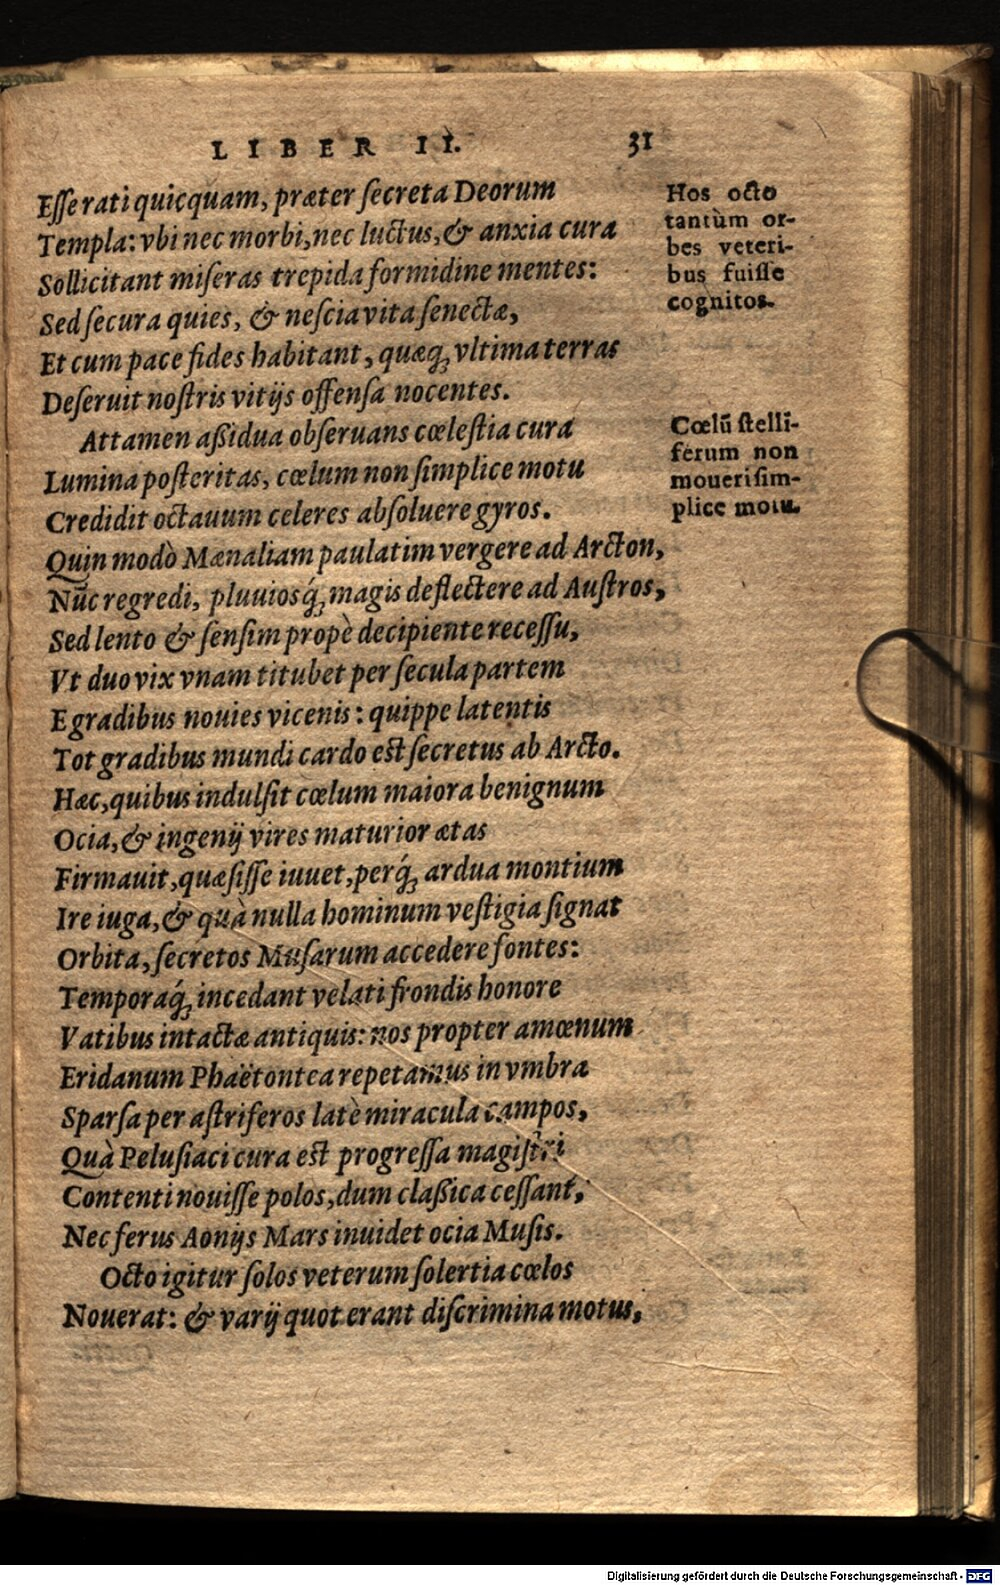 LIBER II. 31
Esse rati quicquam, præter secreta Deorum
Templa: vbi nec morbi, nec luctus, & anxia cura
Sollicitant miseras trepida formidine mentes:
Sed secura quies, & nescia vita senectæ,
Et cum pace fides habitant, quæq́; vltima terras
Deseruit nostris vitijs offensa nocentes.
Attamen aßidua obseruans cœlestia cura
Lumina posteritas, cœlum non simplice motu
Credidit octauum celeres absoluere gyros.
Quin modò Mænaliam paulatim vergere ad Arcton,
Nūc regredi, pluuiosq́; magis deflectere ad Austros,
Sed lento & sensim propè decipiente recessu,
Vt duo vix vnam titubet per secula partem
E gradibus nouies vicenis: quippe latentis
Tot gradibus mundi cardo est secretus ab Arcto.
Hæc, quibus indulsit cœlum maiora benignum
Ocia, & ingenij vires maturior ætas
Firmauit, quæsisse iuuet, perq́; ardua montium
Ire iuga, & quà nulla hominum vestigia signat
Orbita, secretos Musarum accedere fontes:
Temporaq́; incedant velati frondis honore
Vatibus intactæ antiquis: nos propter amœnum
Eridanum Phaëtontea repetamus in vmbra
Sparsa per astriferos latè miracula campos,
Quà Pelusiaci cura est progressa magistri
Contenti nouisse polos, dum claßica cessant,
Nec ferus Aonijs Mars inuidet ocia Musis.
Octo igitur solos veterum solertia cœlos
Nouerat: & varij quot erant discrimina motus,
Hos octo
tantùm or-
bes veteri-
bus fuisse
cognitos.
Cœlū stelli-
ferum non
moueri sim-
plice motu.
Digitalisierung gefördert durch die Deutsche Forschungsgemeinschaft - DFG